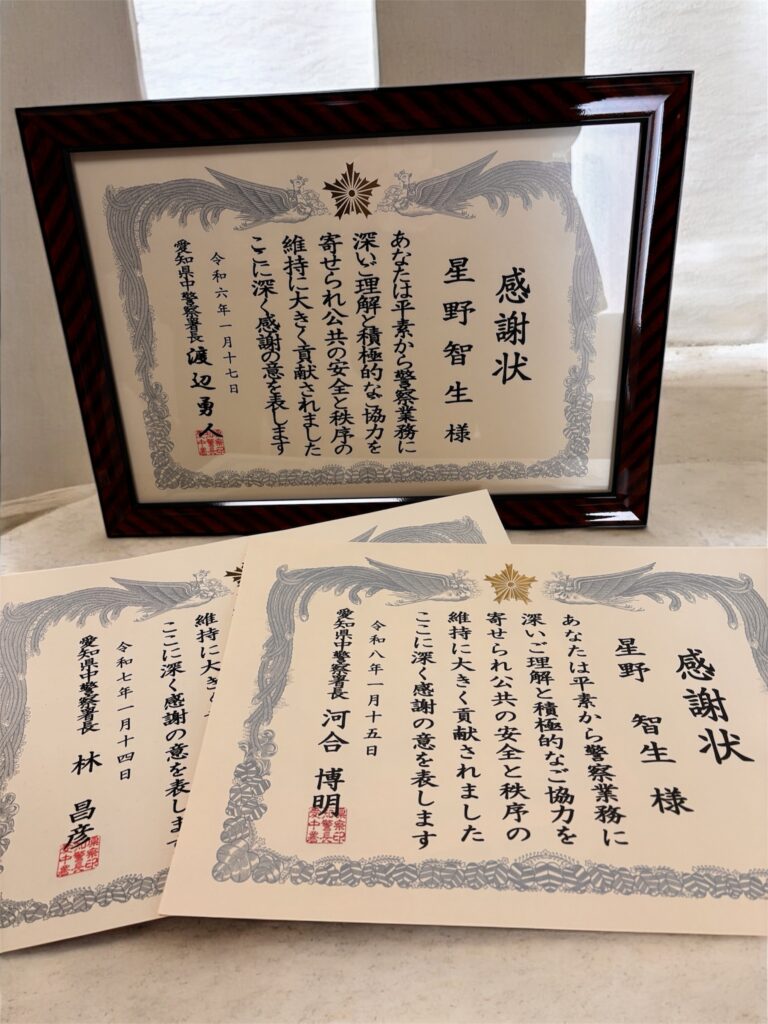 感謝状
星野智生様
あなたは平素から警察業務に
深いご理解と積極的なご協力を
寄せられ公共の安全と秩序の
維持に大きく貢献されました
ここに深く感謝の意を表します
令和六年一月十七日
愛知県中警察署長 渡辺勇人
感謝状
星野 智生 様
あなたは平素から警察業務に
深いご理解と積極的なご協力を
寄せられ公共の安全と秩序の
維持に大きく貢献されました
ここに深く感謝の意を表します
令和八年一月十五日
愛知県中警察署長 河合 博明
維持に大き
ここに深く感謝の意を表します
令和七年一月十四日
愛知県中警察署長 林 昌彦